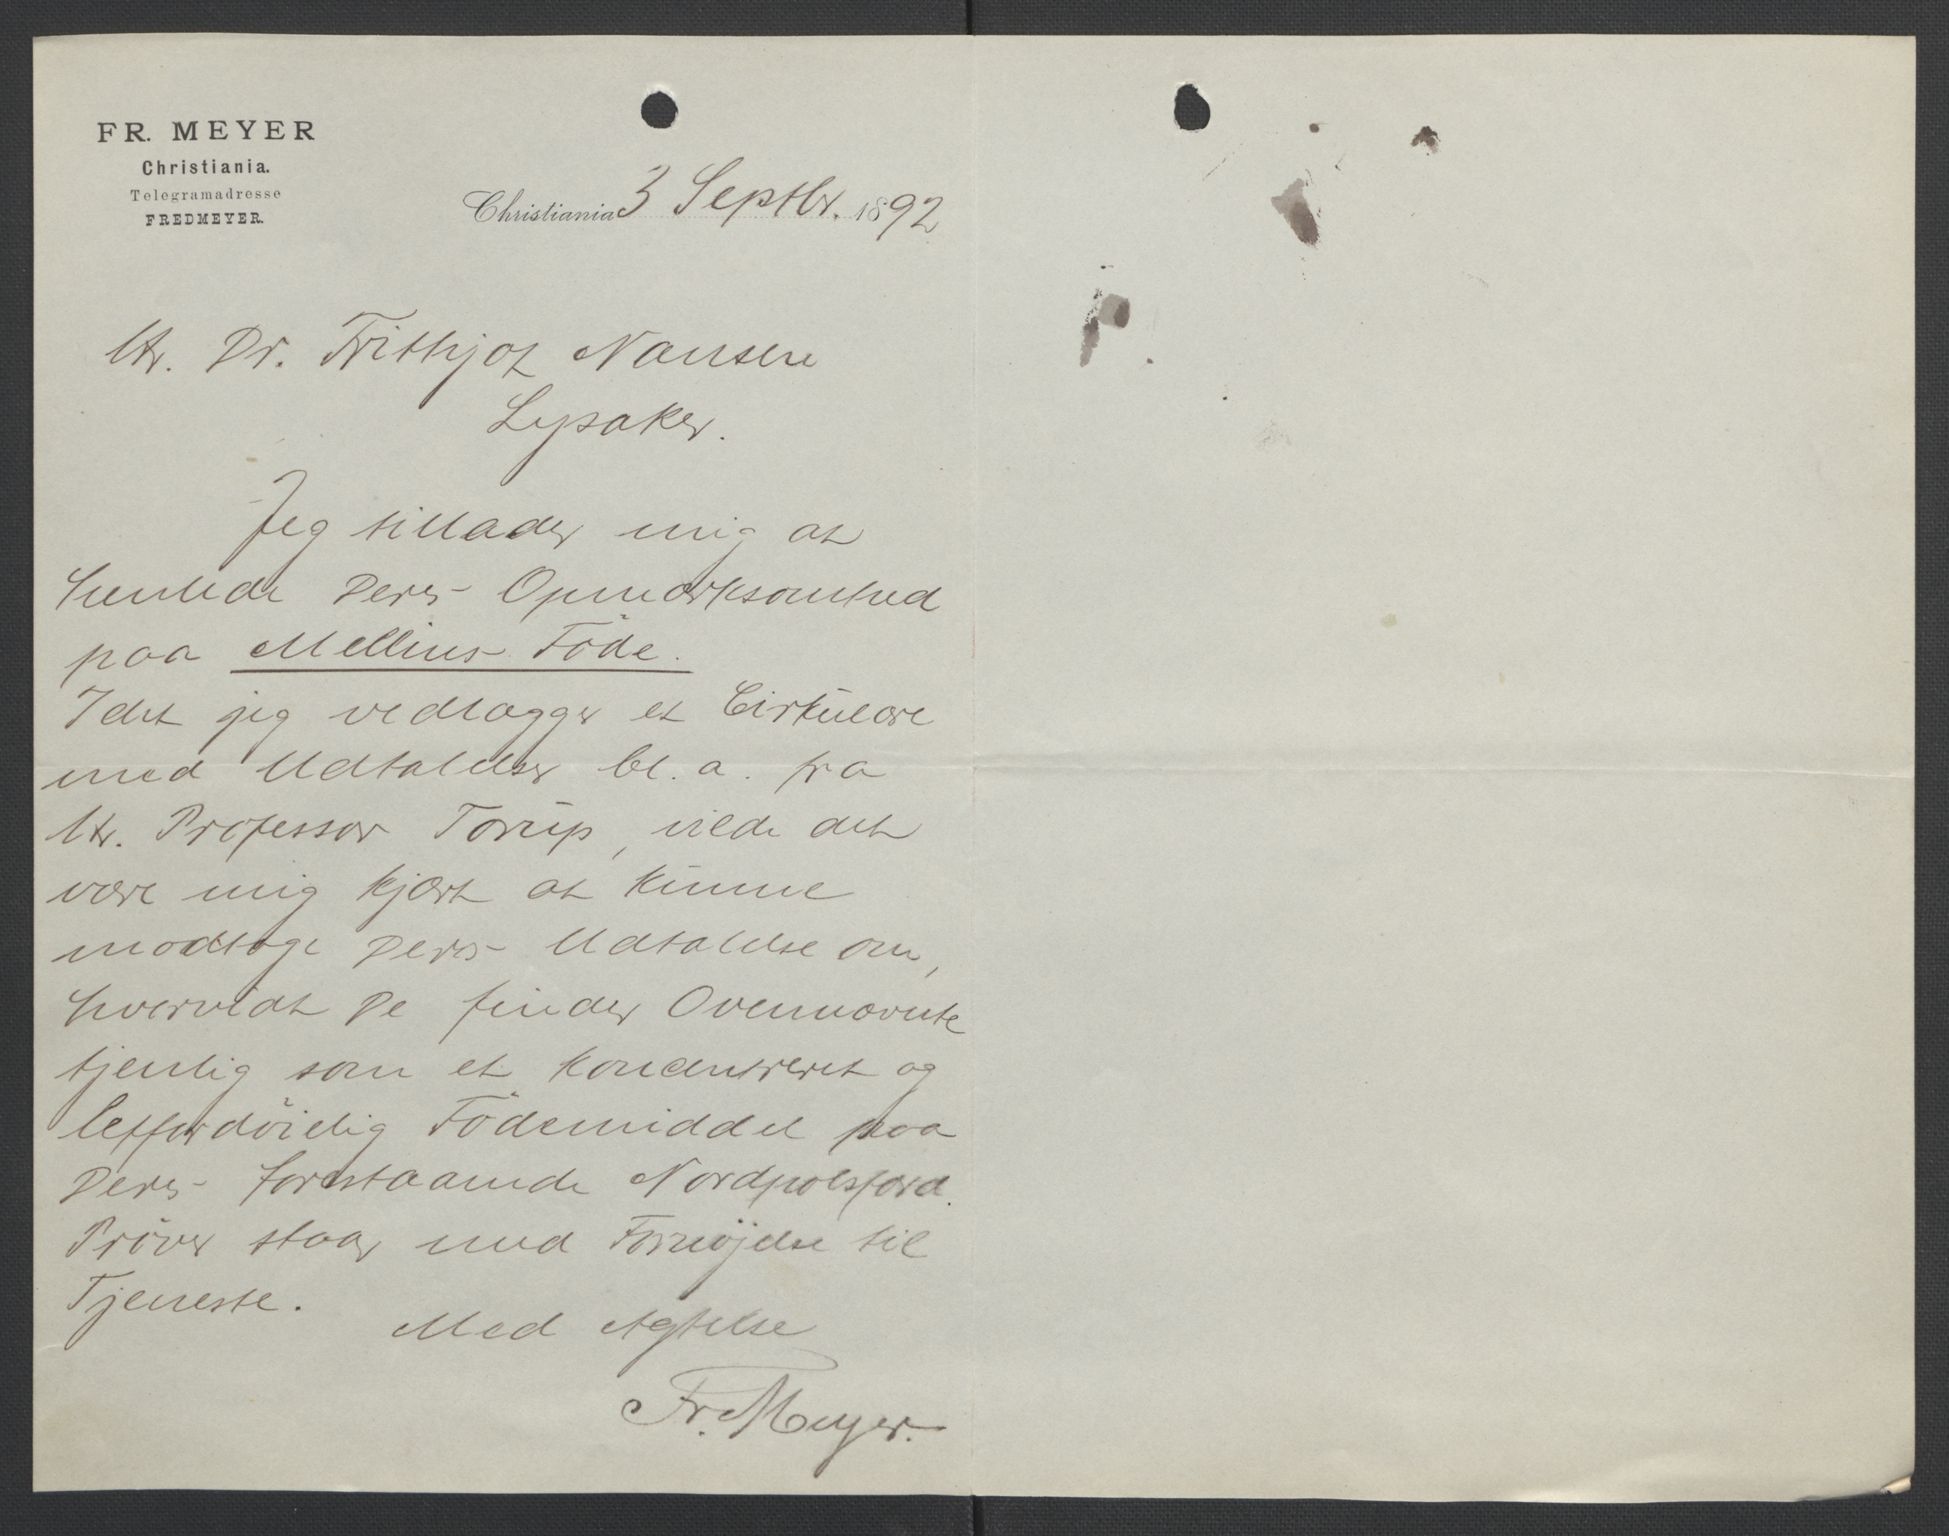 FR. MEYER
Christiania.
Telegramadresse
FREDMEYER.
Christiania 3 Septbr. 1892
Hr. Dr. Frithjof Nansen
Lysaker.
Jeg tillader mig at
henlede Deres Opmærksomhed
paa Mellins Föde.
Idet jeg vedlægger et Cirkulære
med Udtalelser bl. a. fra
Hr. Professor Torup, vilde det
være mig kjært at kunne
modtage Deres Udtalelse om,
hvorvidt De finder Ovennævnte
tjenlig som et koncentreret og
letfordöielig Födemiddel paa
Deres forestaaende Nordpolsfærd.
Pröver staar med Fornöjelse til
Tjeneste.
Med Agtelse
Fr. Meyer.